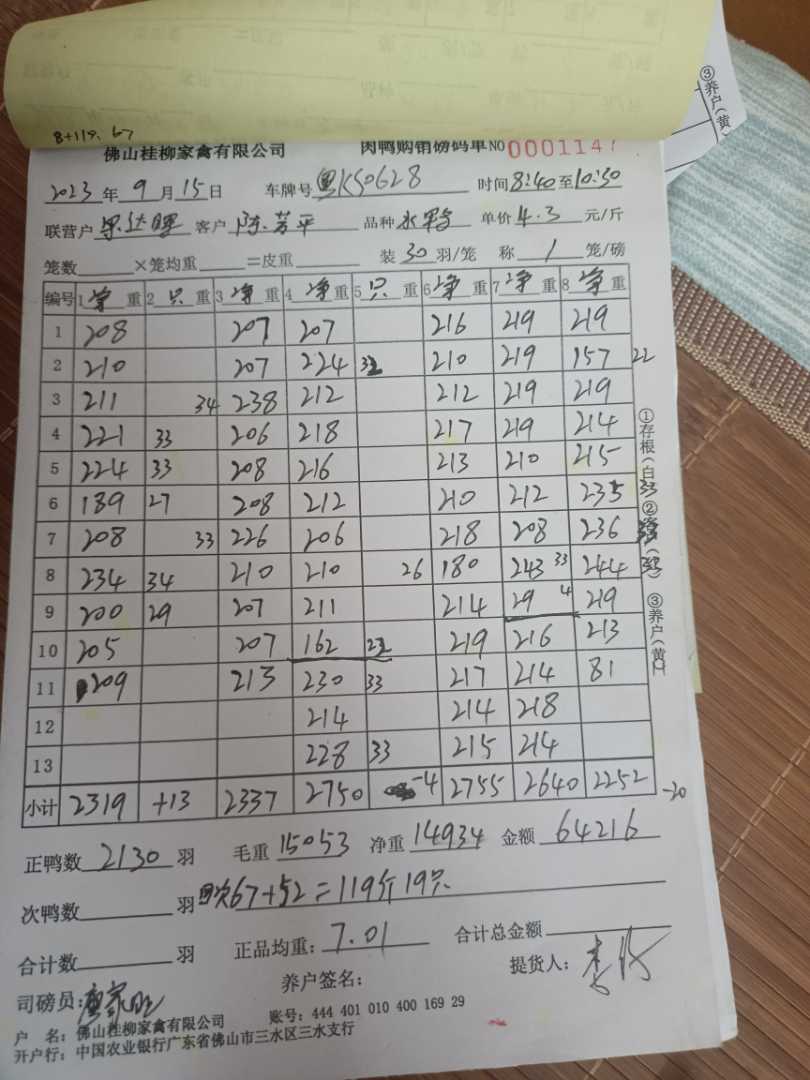 8+119. 67
佛山桂柳家禽有限公司 肉鸭购销磅码单 NO 0001147
2023 年 9 月 15 日 车牌号 粤K50628 时间 8:40 至 10:50
联营户 客户 陈芳平 品种 水鸭 单价 4.3 元/斤
笼数 ×笼均重 =皮重 装 30 羽/笼 称 1 笼/磅
编号 1 净 重 2 只 重 3 净 重 4 净 重 5 只 重 6 净 重 7 净 重 8 净 重
1 208 207 207 216 219 219
2 210 207 224 32 210 219 157 22
3 211 34 238 212 212 219 219
4 221 33 206 218 217 219 214
5 224 33 208 216 213 210 215
6 189 27 208 212 210 212 235 33
7 208 33 226 206 218 208 236
8 234 34 210 210 26 180 243 33 244 33
9 200 29 207 211 214 29 4 219
10 205 207 162 219 216 213
11 209 213 230 33 217 214 81
12 214 214 218
13 228 33 215 214
小计 2319 +13 2337 2750 -4 2755 2640 2252 -20
正鸭数 2130 羽 毛重 15053 净重 14934 金额 64216
次鸭数 羽 次67+52=119斤19只
合计数 羽 正品均重: 7.01 合计总金额
司磅员: 养户签名: 提货人:
户 名: 佛山桂柳家禽有限公司 账号: 444 401 010 400 169 29
开户行: 中国农业银行广东省佛山市三水区三水支行
①存根(白)
③养户(黄)
③养户(黄)